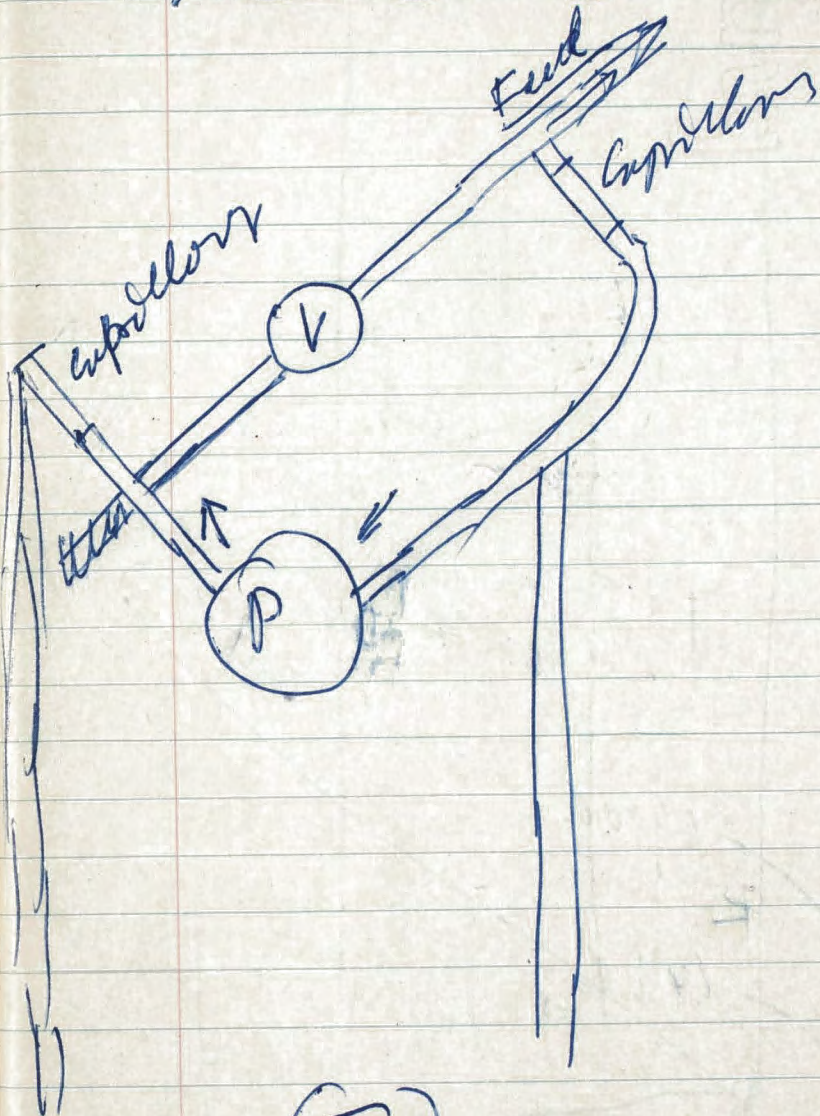 Feed
Capillary
capillary
V
P